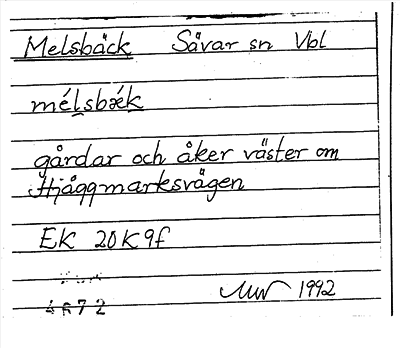 Melsbäck Sävar sn Vbl
mélsbæ̀k
gårdar och åker väster om
Hjåggmarksvägen
EK 20K 9f
4672 1992